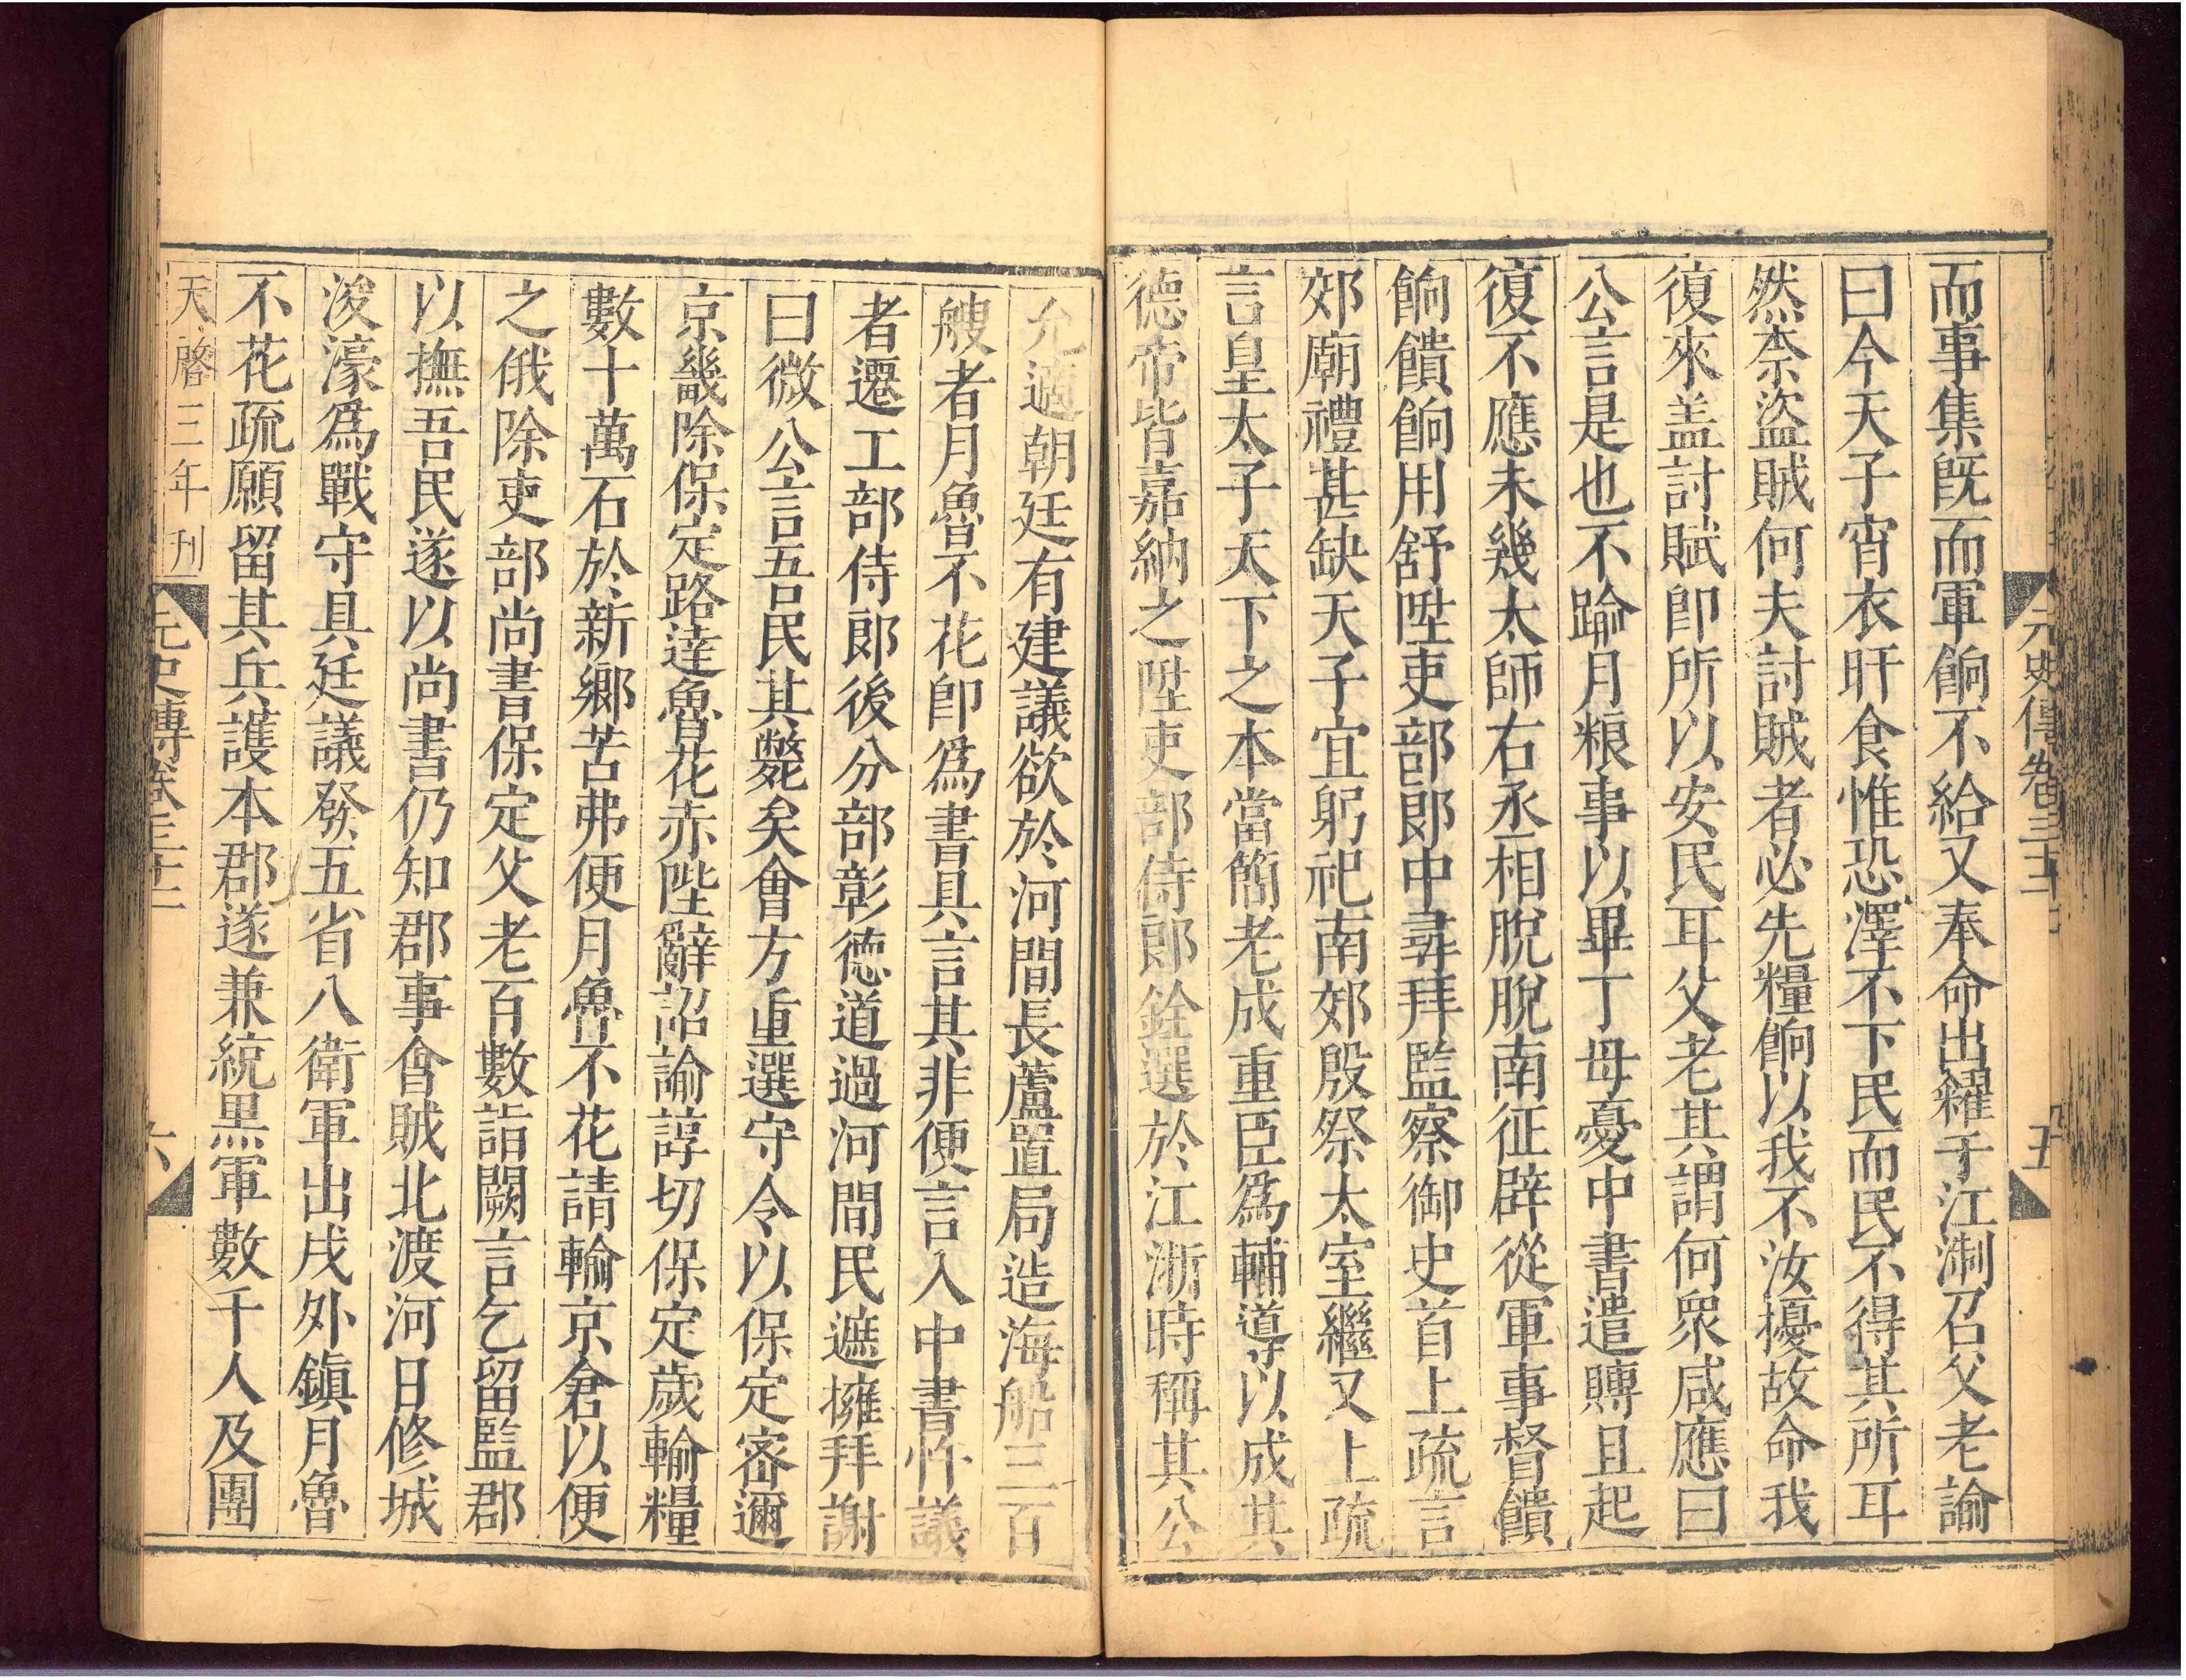 元史傳卷三十二
五
而事集旣而軍餉不給又奉命出糴于江淛召父老諭
曰今天子宵衣旰食惟恐澤不下民而民不得其所耳
然柰盜賊何夫討賊者必先糧餉以我不汝擾故命我
復來盖討賦卽所以安民耳父老其謂何衆咸應曰
公言是也不踰月粮事以畢丁母憂中書遣賻且起
復不應未幾太師右丞相脫脫南征辟從軍事督饋
餉饋餉用舒陞吏部郎中尋拜監察御史首上疏言
郊廟禮甚缺天子宜躬祀南郊殷祭太室繼又上疏
言皇太子天下之本當簡老成重臣爲輔導以成其
德帝皆嘉納之陞吏部侍郎銓選於江浙時稱其公
允適朝廷有建議欲於河間長蘆置局造海船三百
艘者月魯不花卽爲書具言其非便言入中書忤議
者遷工部侍郎後分部彰德道過河間民遮擁拜謝
曰微公言吾民其斃矣會方重選守令以保定密邇
京畿除保定路達魯花赤陛辭詔諭諄切保定歲輸糧
數十萬石於新鄉苦弗便月魯不花請輸京倉以便
之俄除吏部尚書保定父老百數詣闕言乞留監郡
以撫吾民遂以尚書仍知郡事會賊北渡河日修城
浚濠爲戰守具廷議發五省八衛軍出戍外鎮月魯
不花疏願留其兵護本郡遂兼統黑軍數千人及團
天啓三年刊
元史傳卷三十二
六